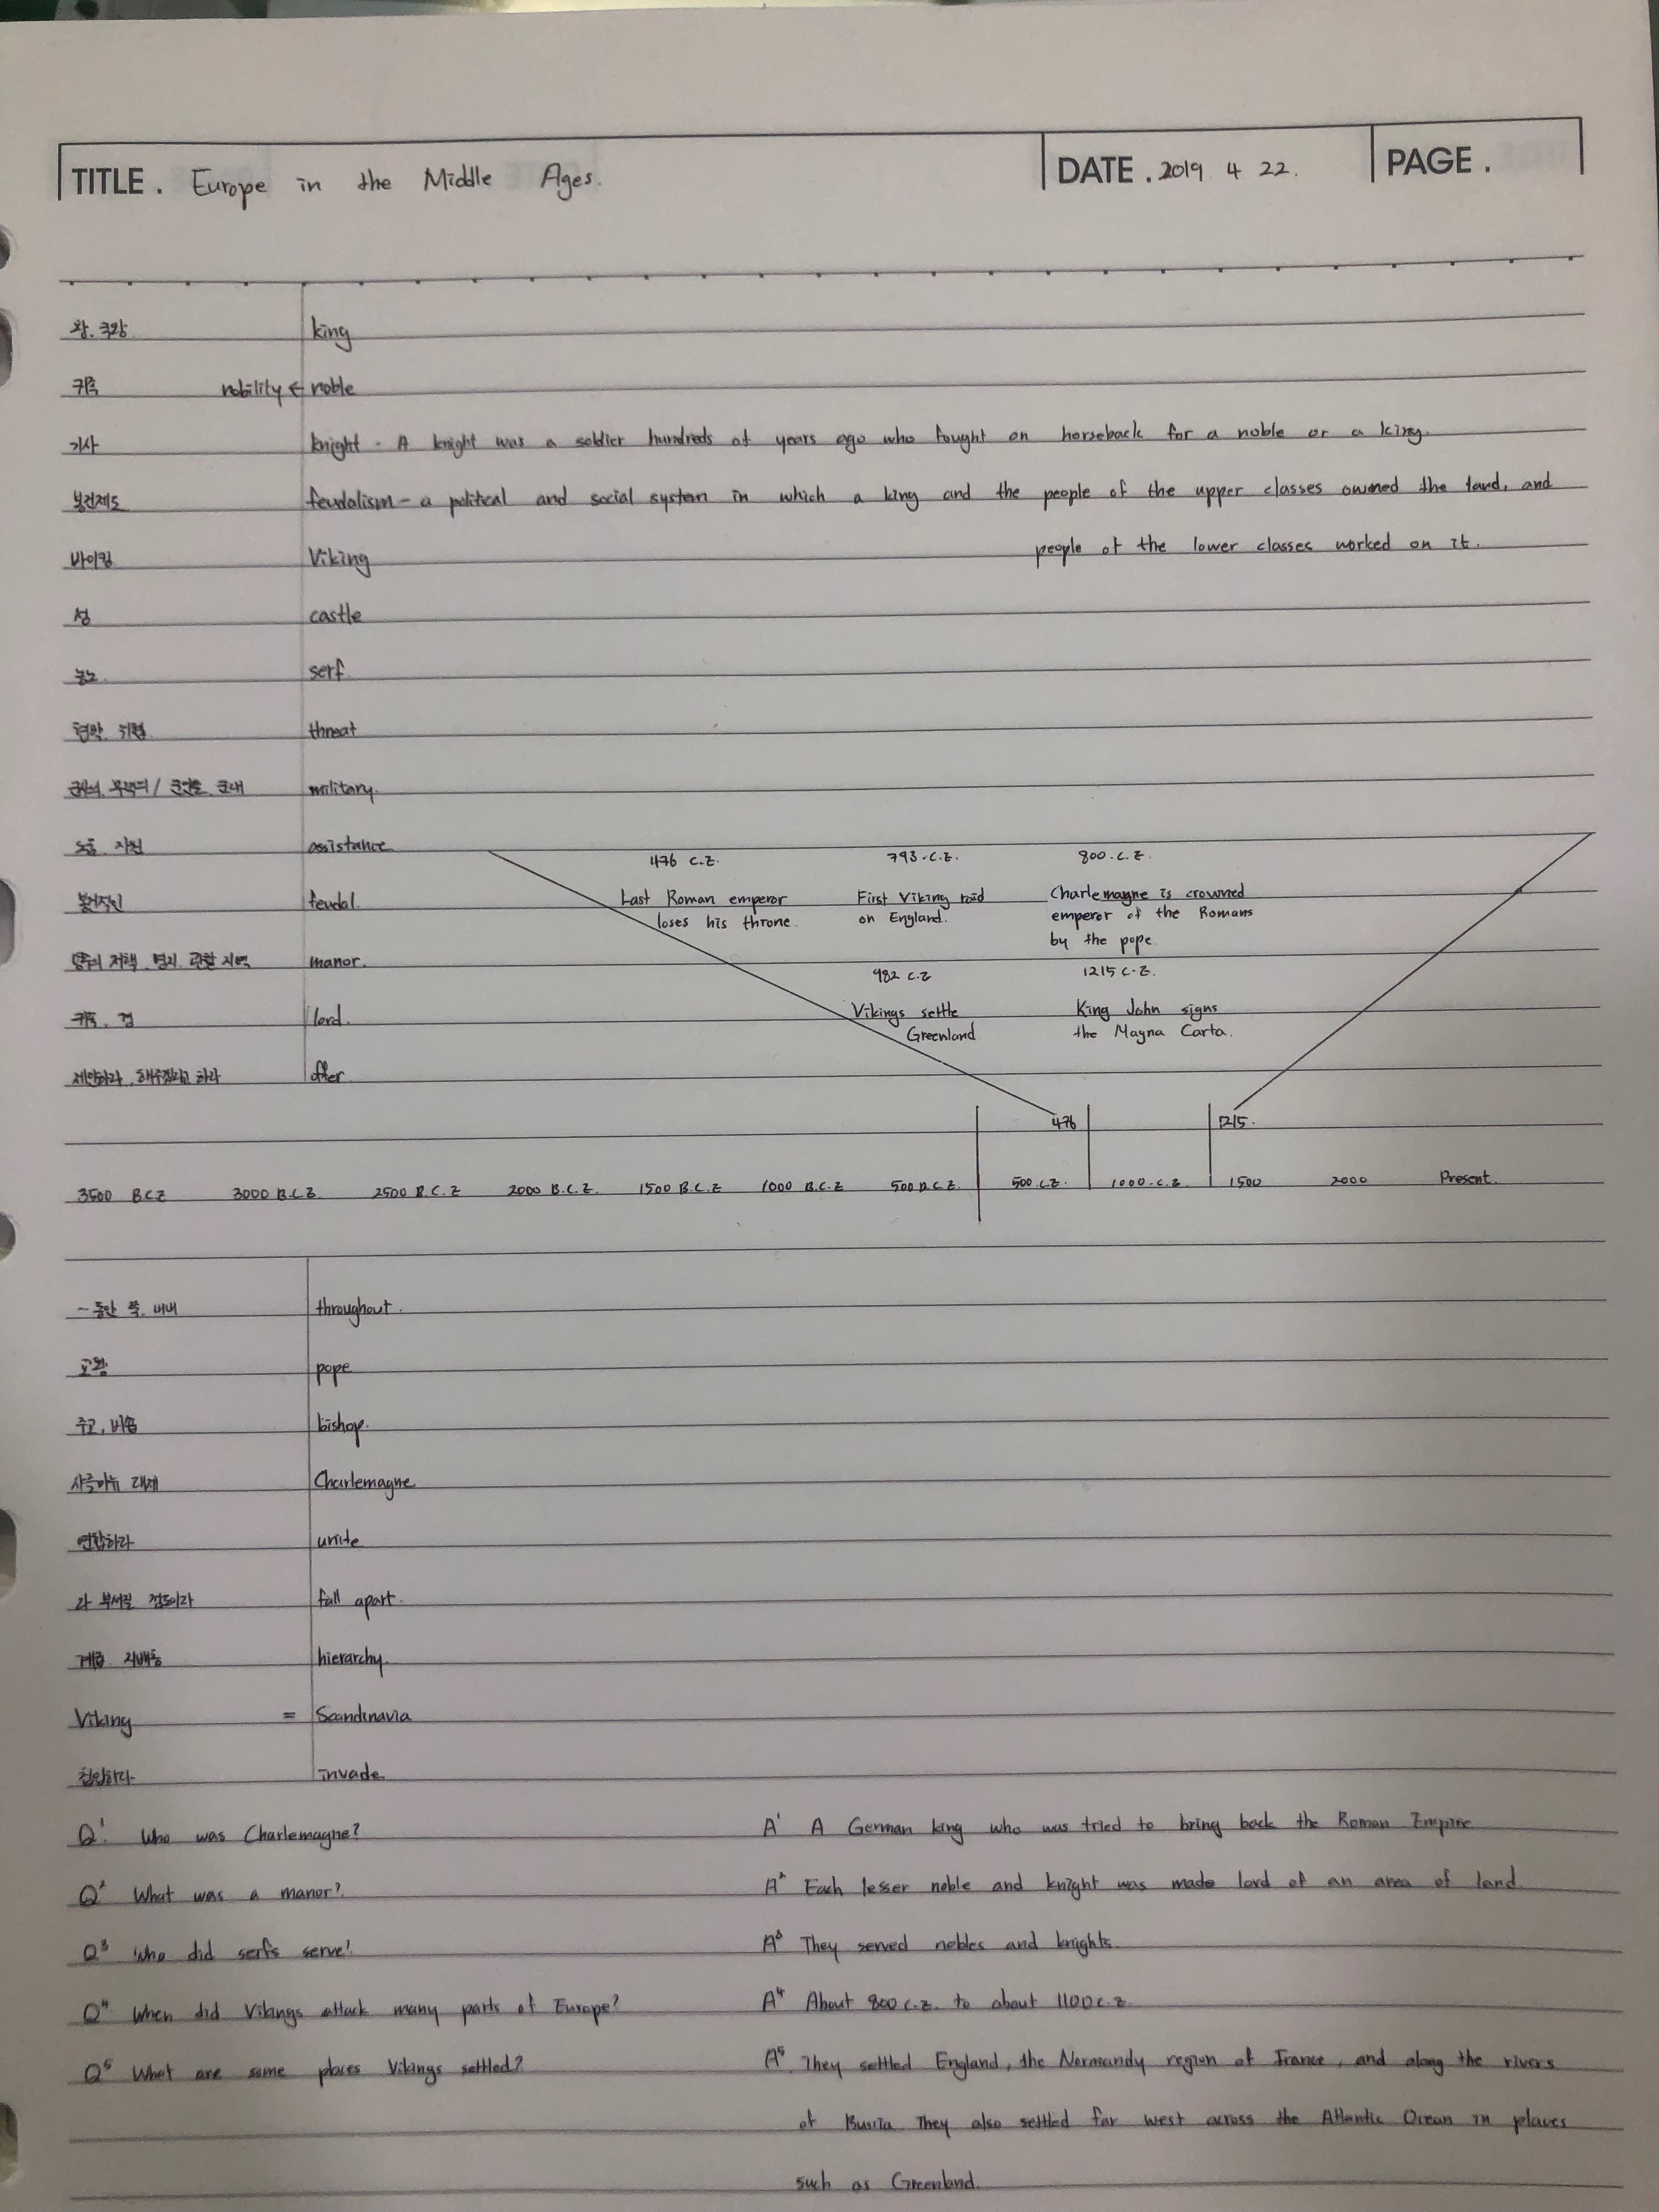 TITLE. Europe in the Middle Ages.
DATE. 2019 4 22.
PAGE.
왕. 국왕 king
귀족 nobility ← noble
기사 knight - A knight was a soldier hundreds of years ago who fought on horseback for a noble or a king.
봉건제도 feudalism - a political and social system in which a king and the people of the upper classes owned the land, and
people of the lower classes worked on it.
바이킹 Viking
성 castle
농노 serf.
협박 위협 threat
military.
도움 지원 assistance
476 C.E. 793.C.E. 800.C.E.
봉건적인 feudal.
Last Roman emperor First Viking raid Charlemagne is crowned
loses his throne. on England. emperor of the Romans
by the pope.
영주의 저택. 영지. 관할 지역 manor.
982 C.E 1215 C.E.
귀족. 경 lord.
Vikings settle King John signs
Greenland the Magna Carta.
제안하다. 해주겠다고 하다 offer.
476 1215.
3500 B.C.E 3000 B.C.E 2500 B.C.E 2000 B.C.E. 1500 B.C.E 1000 B.C.E 500 B.C.E. 500 .C.E. 1000.C.E. 1500 2000 Present.
~동안 쭉. 내내 throughout.
교황 pope
주교, 비숍 bishop.
샤를마뉴 대제 Charlemagne
연합하다 unite
다 부서질 정도이다 fall apart.
계급. 지배층 hierarchy.
Viking = Scandinavia
침입하다 invade
Q1. Who was Charlemagne? A1 A German king who was tried to bring back the Roman Empire
Q2 What was a manor? A2 Each lesser noble and knight was made lord of an area of land.
Q3 Who did serfs serve? A3 They served nobles and knights.
Q4 When did Vikings attack many parts of Europe? A4 About 800 C.E. to about 1100 C.E.
Q5 What are some places Vikings settled? A5 They settled England, the Normandy region of France, and along the rivers
of Russia They also settled far west across the Atlantic Ocean in places
such as Greenland.